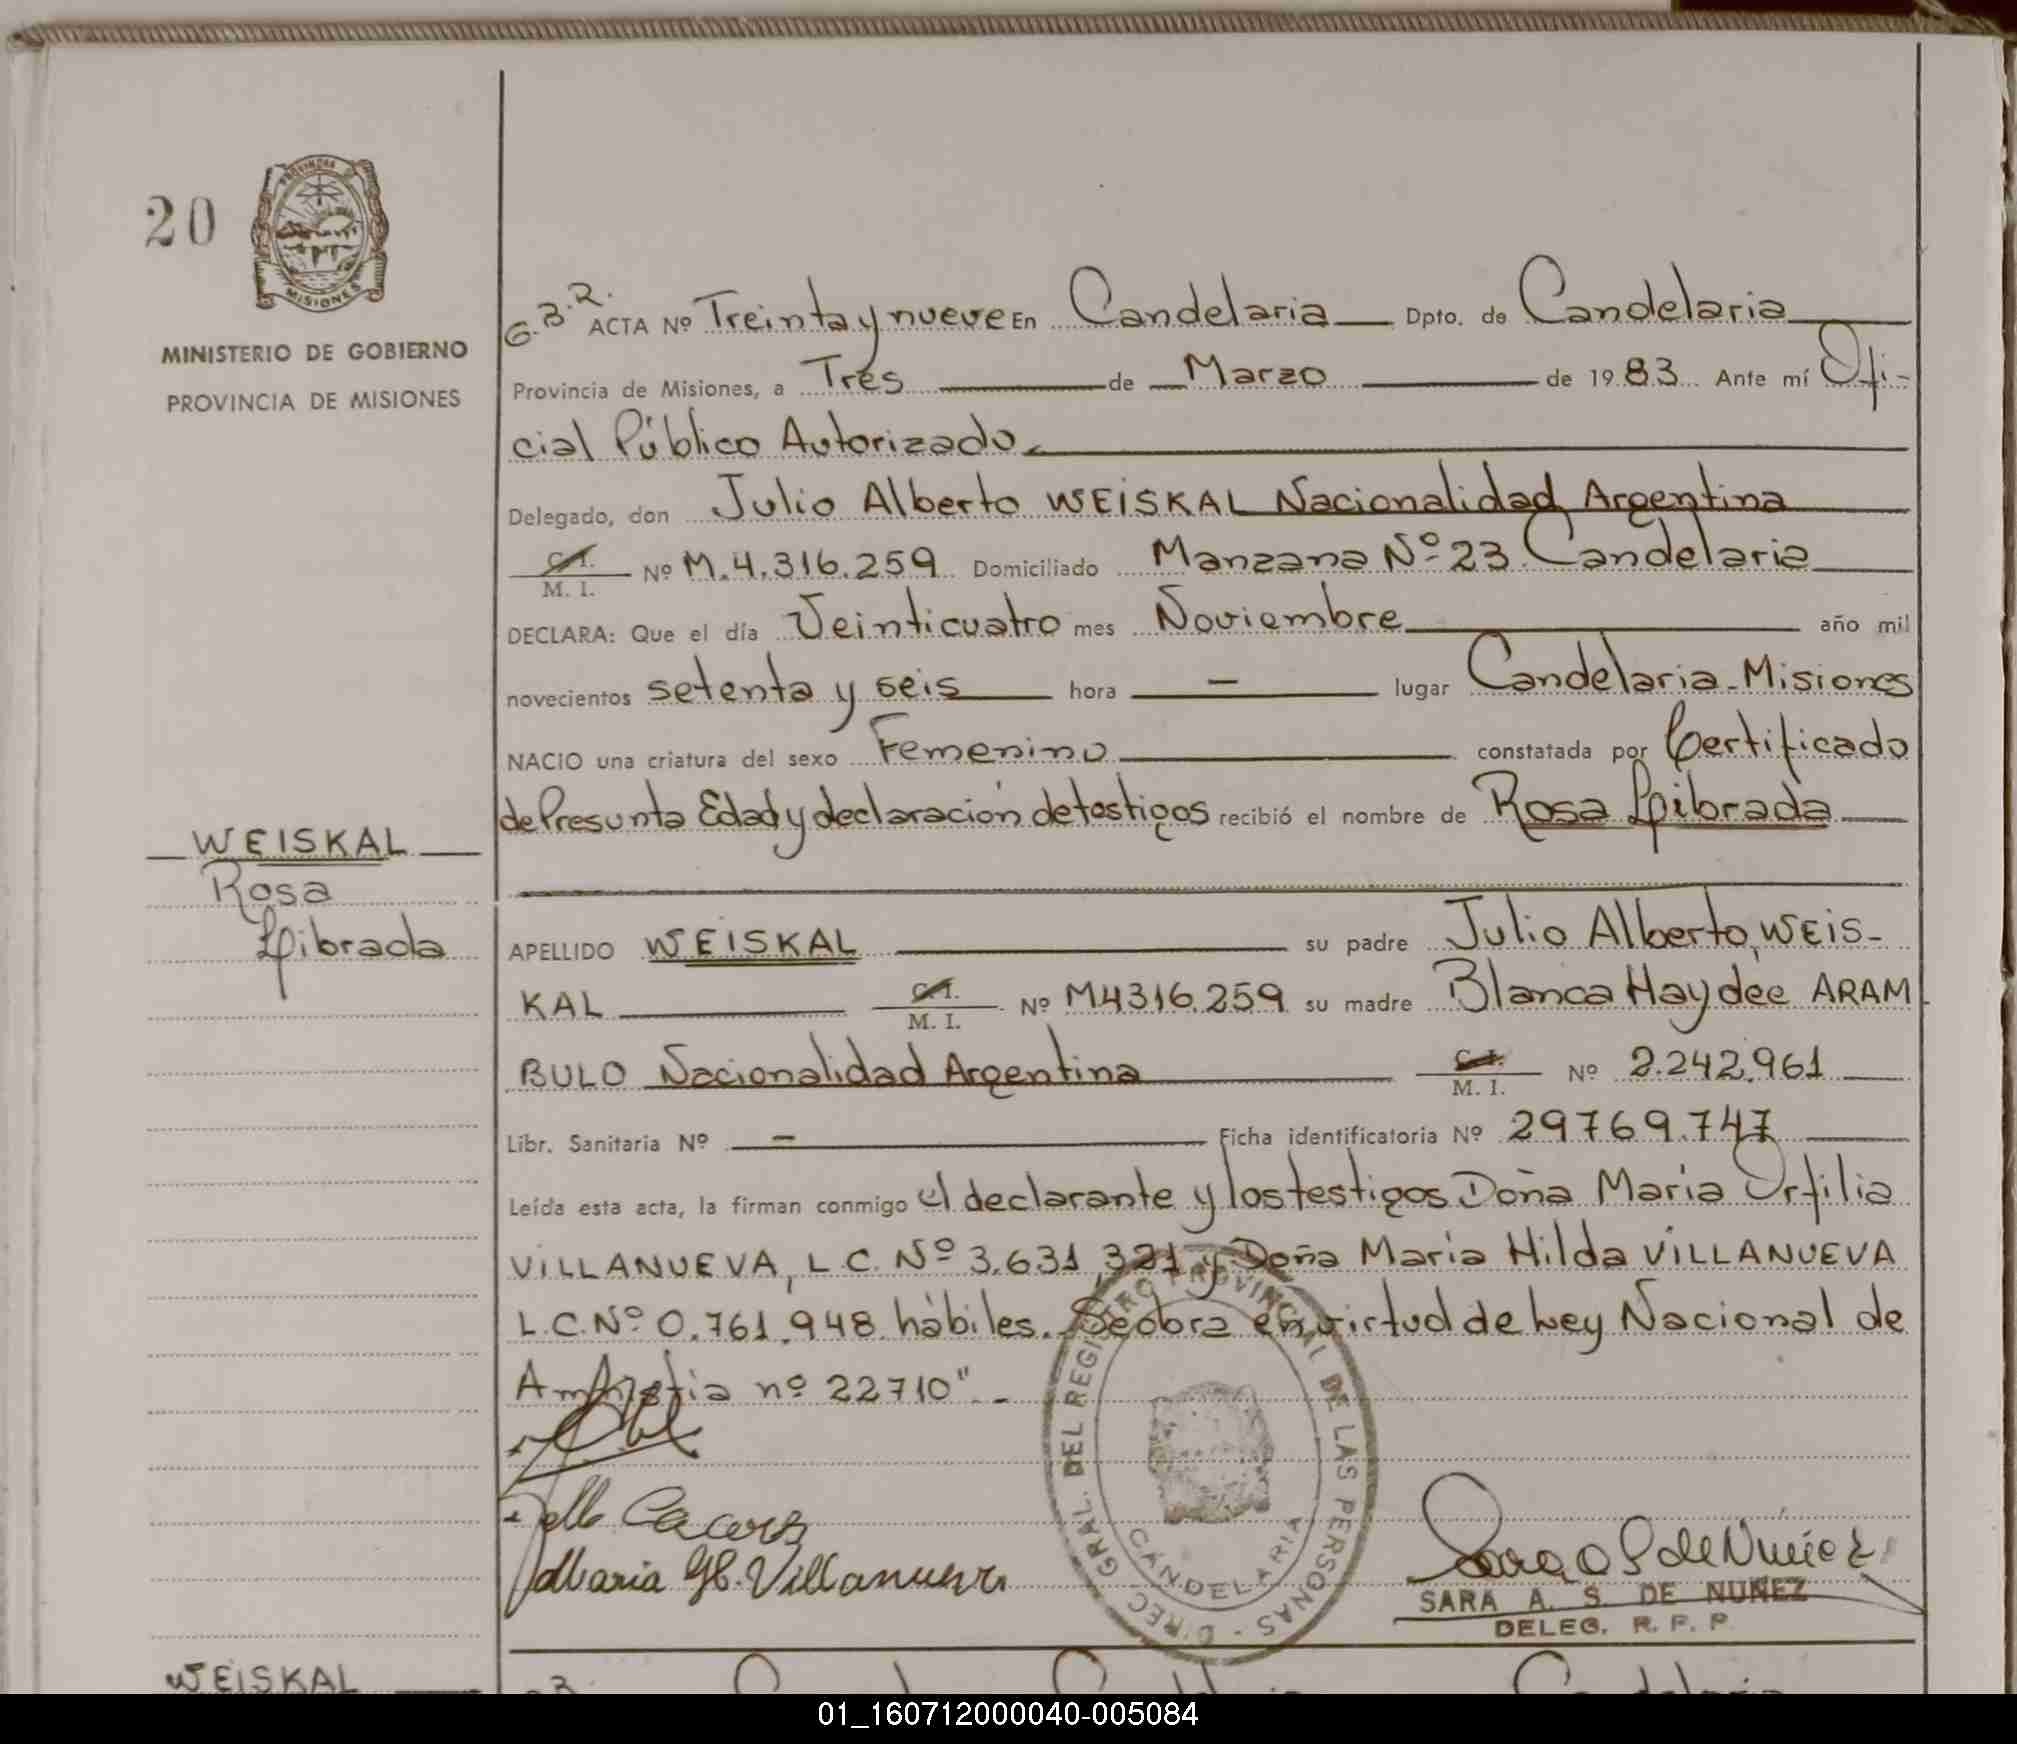 20
PROVINCIA
MISIONES
MINISTERIO DE GOBIERNO
PROVINCIA DE MISIONES
G.B.R. ACTA Nº Treinta y nueve En Candelaria Dpto. de Candelaria
Provincia de Misiones, a Tres de Marzo de 1983 Ante mí Ofi-
cial Público Autorizado.
Delegado, don Julio Alberto WEISKAL Nacionalidad Argentina
C.I. M. I. Nº M.4.316.259 Domiciliado Manzana Nº 23 Candelaria
DECLARA: Que el día Veinticuatro mes Noviembre año mil
novecientos setenta y seis hora — lugar Candelaria-Misiones
NACIO una criatura del sexo Femenino constatada por Certificado
de Presunta Edad y declaración de testigos recibió el nombre de Rosa Librada
WEISKAL
Rosa
Librada
APELLIDO WEISKAL su padre Julio Alberto WEIS-
KAL C.I. M. I. Nº M4316.259 su madre Blanca Haydée ARAM
BULO Nacionalidad Argentina C.I. M. I. Nº 2.242.961
Libr. Sanitaria Nº — Ficha identificatoria Nº 29769.747
Leída esta acta, la firman conmigo el declarante y los testigos Doña María Orfilia
VILLANUEVA, L.C. Nº 3.631.321 y Doña María Hilda VILLANUEVA
L.C. Nº 0.761.948 hábiles. Se obra en virtud de Ley Nacional de
Amnistia nº 22710".-
DIREC. GRAL. DEL REGISTRO PROVINCIAL DE LAS PERSONAS -
CANDELARIA
Maria H. Villanueva
Sara S de Nuñez
SARA A. S. DE NUÑEZ
DELEG. R. P. P.
WEISKAL
01_160712000040-005084